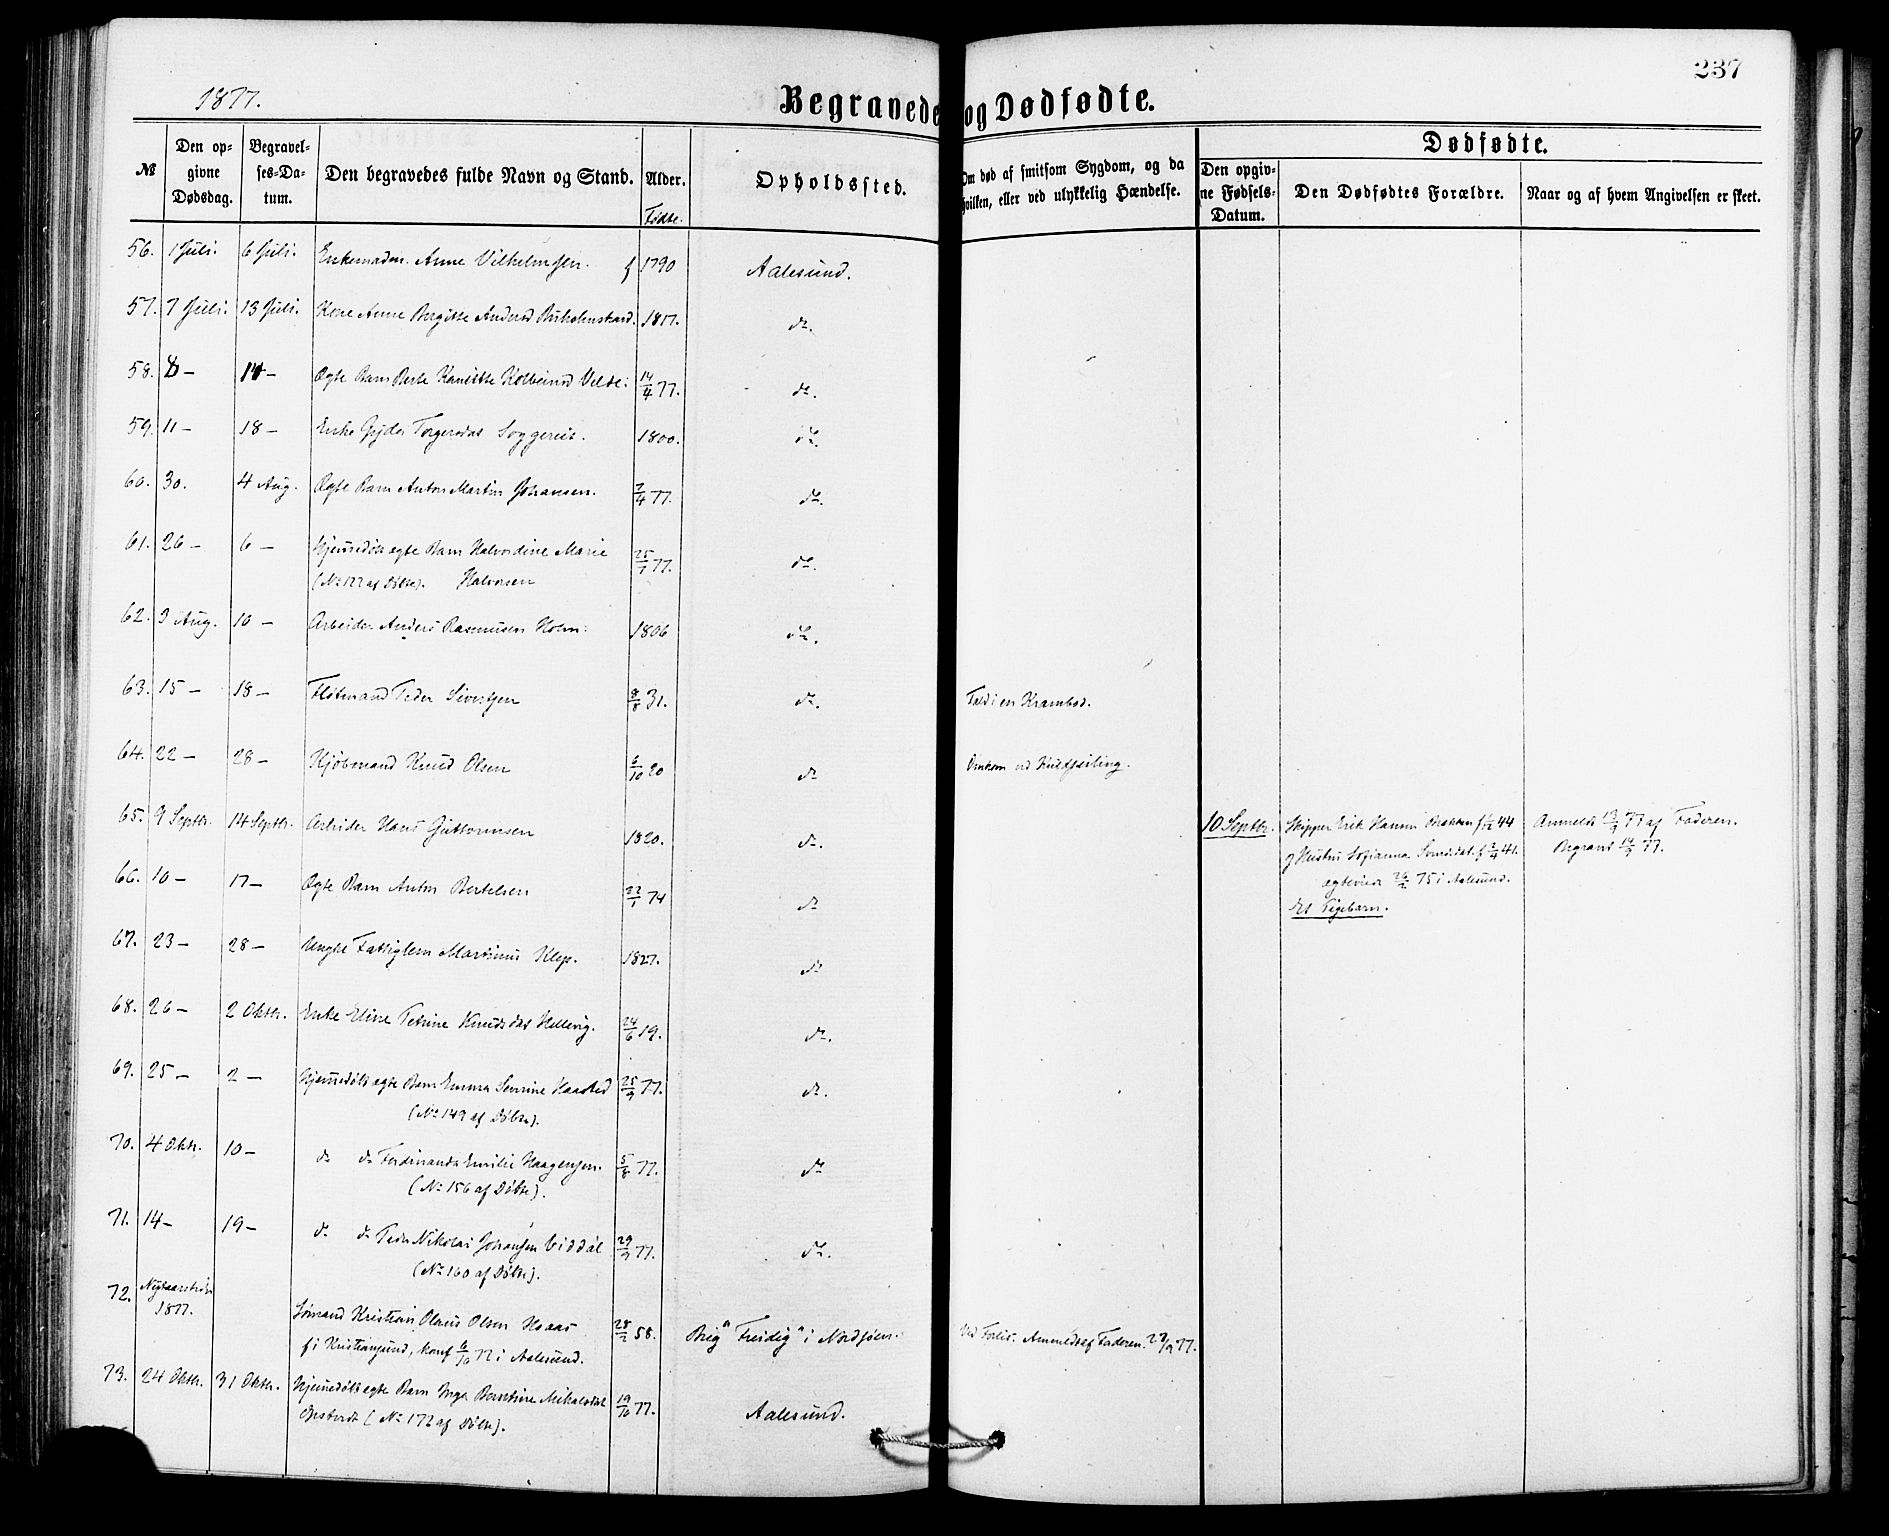 237
1877.
Begravede og Dødfødte.
Dødfødte.
№
Den op-
givne
Dødsdag.
Begravel-
ses-Da-
tum.
Den begravedes fulde Navn og Stand.
Alder.
Fødte.
Opholdssted.
Om død af smitsom Sygdom, og da
hvilken, eller ved ulykkelig Hændelse.
Den opgiv-
ne Fødsels-
Datum.
Den Dødfødtes Forældre.
Naar og af hvem Angivelsen er skeet.
56. 1 Juli. 6 Juli. Enkemadm. Anne Vilhelmsen. f 1790 Aalesund.
57. 7 Juli. 13 Juli. Kone Anne Birgitte Andersd 1817. do.
58. 8 — 14 — Ægte Barn Berte Kolbeinsd Velde. 14/4 77. do.
59. 11 — 18 — Enke Gjda Torgersdat 1800. do.
60. 30. 4 Aug. Ægte Barn Anton Martin Johansen. 2/4 77. do.
61. 26 — 6 — Hjemmedøbt ægte Barn Halvordine Marie 25/7 77. do.
(No 127 af Døbte). Halvorsen
62. 3 Aug. 10 — Arbeider Anders Rasmusen Holm. 1806 do.
63. 15 — 18 — Peder Sivertsen 8/8 31. do. Fald i en Krambod.
64. 22 — 28 — Kjøbmand Knud Olsen 6/10 20 do Omkom ved
65. 9 Septbr. 14 Septbr. Arbeider Hans Guttormsen 1820. do. 10 Septbr. Skipper Erik Hansen f 44 Anmeldt 13/9 77 af Faderen.
og Hustru 41. Begravet 14/9 77.
ægteviede 26/2 75 i Aalesund.
Et Pigebarn.
66. 10 — 17 — Ægte Barn Anton Bertelsen 22/1 74 do
67. 23 — 28 — Ungkl Fattiglem Martinus Klep. 1827. do
68. 26 — 2 Oktbr. Enke Eline Petrine Knudsdat Hellevig. 24/6 19. do.
69. 25 — 2 — Hjemmedøbt ægte Barn Emma Severine 25/9 77. do.
(No 149 af Døbte).
70. 4 Oktbr. 10 — do do Ferdinanda Emilie Haagensen. 5/8 77. do
(No 156 af Døbte).
71. 14 — 19 — do do Peder Nikolai Johansen Viddal 29/9 77. do.
(No 160 af Døbte).
72. Nytaarstider
1877.
Sømand Kristian Olaus Olsen 28/2 58. Brig "Freidig" i Nordsjøen. Ved Forlis. Anmeldt af Faderen.
f i Kristiansund, konf 6/10 72 i Aalesund.
73. 24 Oktbr. 31 Oktbr. Hjemmedøbt ægte Barn Inga Berntine Mikalsdat 19/10 77. Aalesund.
(No 172 af Døbte).